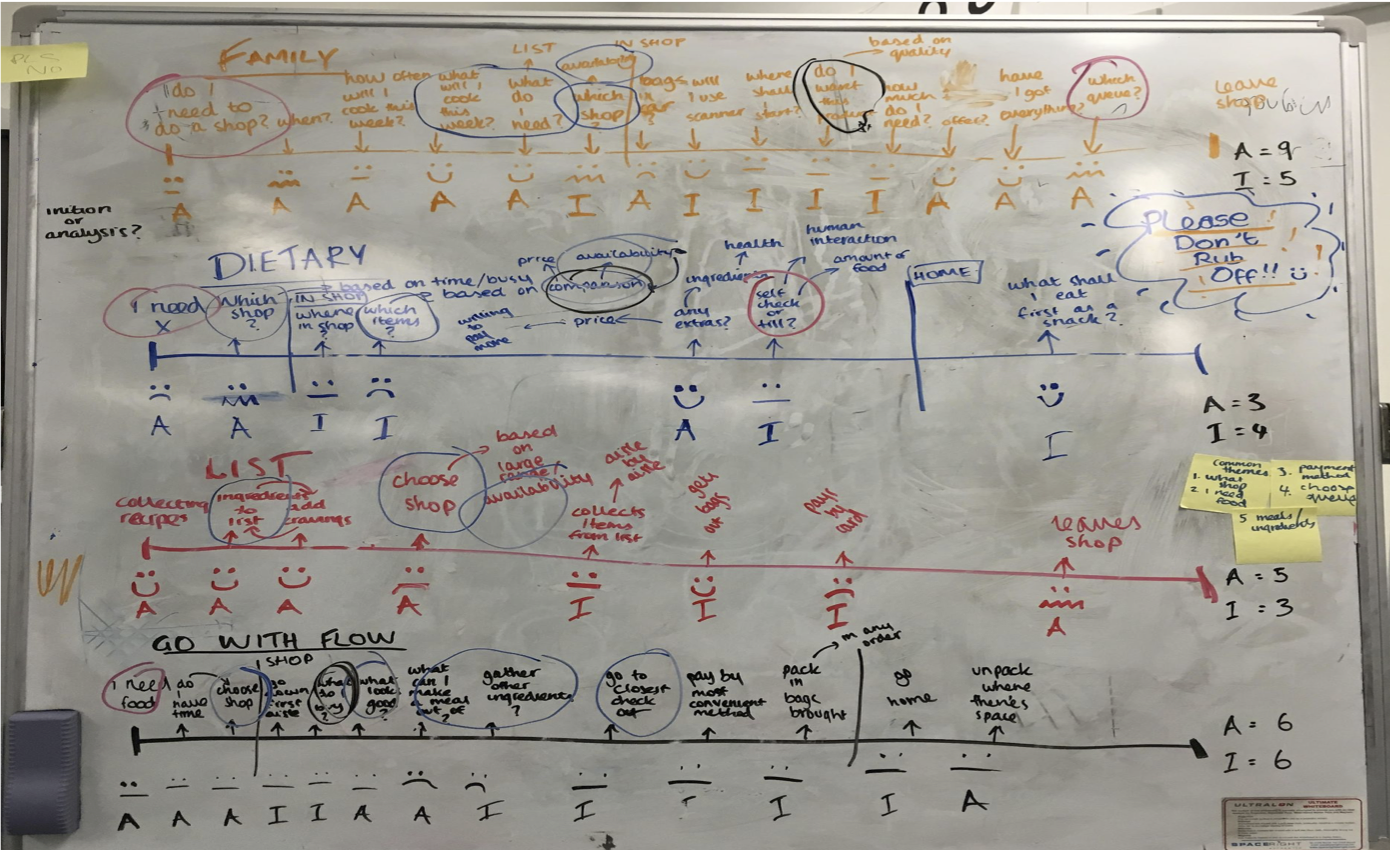 PLS
NO
FAMILY
do I
need to
do a shop?
when?
how often
will I
cook this
week?
what
will I
cook
this
week?
LIST
what
do I
need?
availability
which
shop
?
IN SHOP
bags
in
car
?
will
I use
scanner
where
shall I
start?
do I
want
this
based on
quality
how
much
do I
need?
offer?
have
I got
everything?
which
queue?
leave
shop
A A A A A I A I I I I A A A
A = 9
I = 5
analysis?
or
Please
Don't
Rub
Off!!
DIETARY
I need
X
Which
shop
?
based on time/busy
IN SHOP
where
in shop
?
which
items
?
based on
price
availability
comparison
price
willing
to
pay
more
health
ingredients
any
extras?
human
interaction
amount of
food
self
check
or
till?
HOME
what shall
I eat
first as
snack?
A A I I A I I
A = 3
I = 4
LIST
collecting
recipes
ingredients
to
list
add
cravings
choose
shop
based
on
large
range/
availability
aisle
by
aisle
collects
items
from list
gets
bags
out
pays
by
card
leaves
shop
A A A A I I I A
common
themes
1. what
shop
2. I need
food
3. payment
method
4. choose
queue
5 meals/
ingredients
A = 5
I = 3
GO WITH FLOW
I need
food
do
I
have
time
choose
shop
SHOP
go
down
first
aisle
what
to
buy
?
what
look
good
?
what
can I
make
a meal
out of?
gather
other
ingredients
?
go to
closest
check
out
pay by
most
convenient
method
pack
in
bags
brought
in any
order
go
home
unpack
where
there's
space
A A A I I A A I I I I I A
A = 6
I = 6
ULTRALON
ULTIMATE
WHITEBOARD
SPACERIGHT